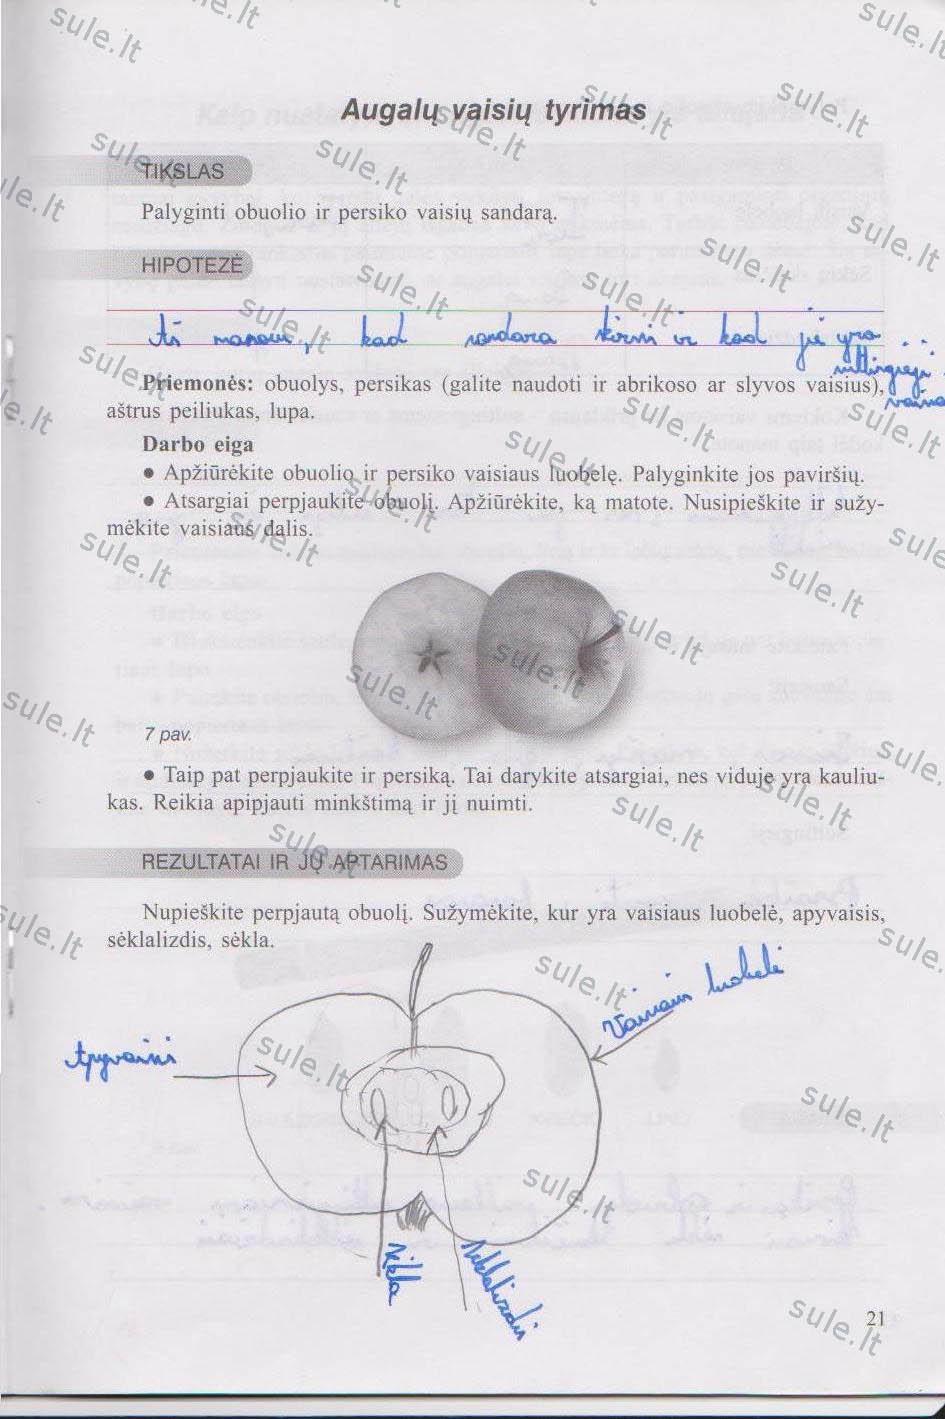 Augalų vaisių tyrimas
TIKSLAS
Palyginti obuolio ir persiko vaisių sandarą.
HIPOTEZĖ
Aš manau, kad sandara skirsis ir kad jie yra
sultingieji
vaisiai
Priemonės: obuolys, persikas (galite naudoti ir abrikoso ar slyvos vaisius),
aštrus peiliukas, lupa.
Darbo eiga
● Apžiūrėkite obuolio ir persiko vaisiaus luobelę. Palyginkite jos paviršių.
● Atsargiai perpjaukite obuolį. Apžiūrėkite, ką matote. Nusipieškite ir sužy-
mėkite vaisiaus dalis.
7 pav.
● Taip pat perpjaukite ir persiką. Tai darykite atsargiai, nes viduje yra kauliu-
kas. Reikia apipjauti minkštimą ir jį nuimti.
REZULTATAI IR JŲ APTARIMAS
Nupieškite perpjautą obuolį. Sužymėkite, kur yra vaisiaus luobelė, apyvaisis,
sėklalizdis, sėkla.
Vaisiaus luobelė
Apyvaisis
sėkla
sėklalizdis
21
sule.lt